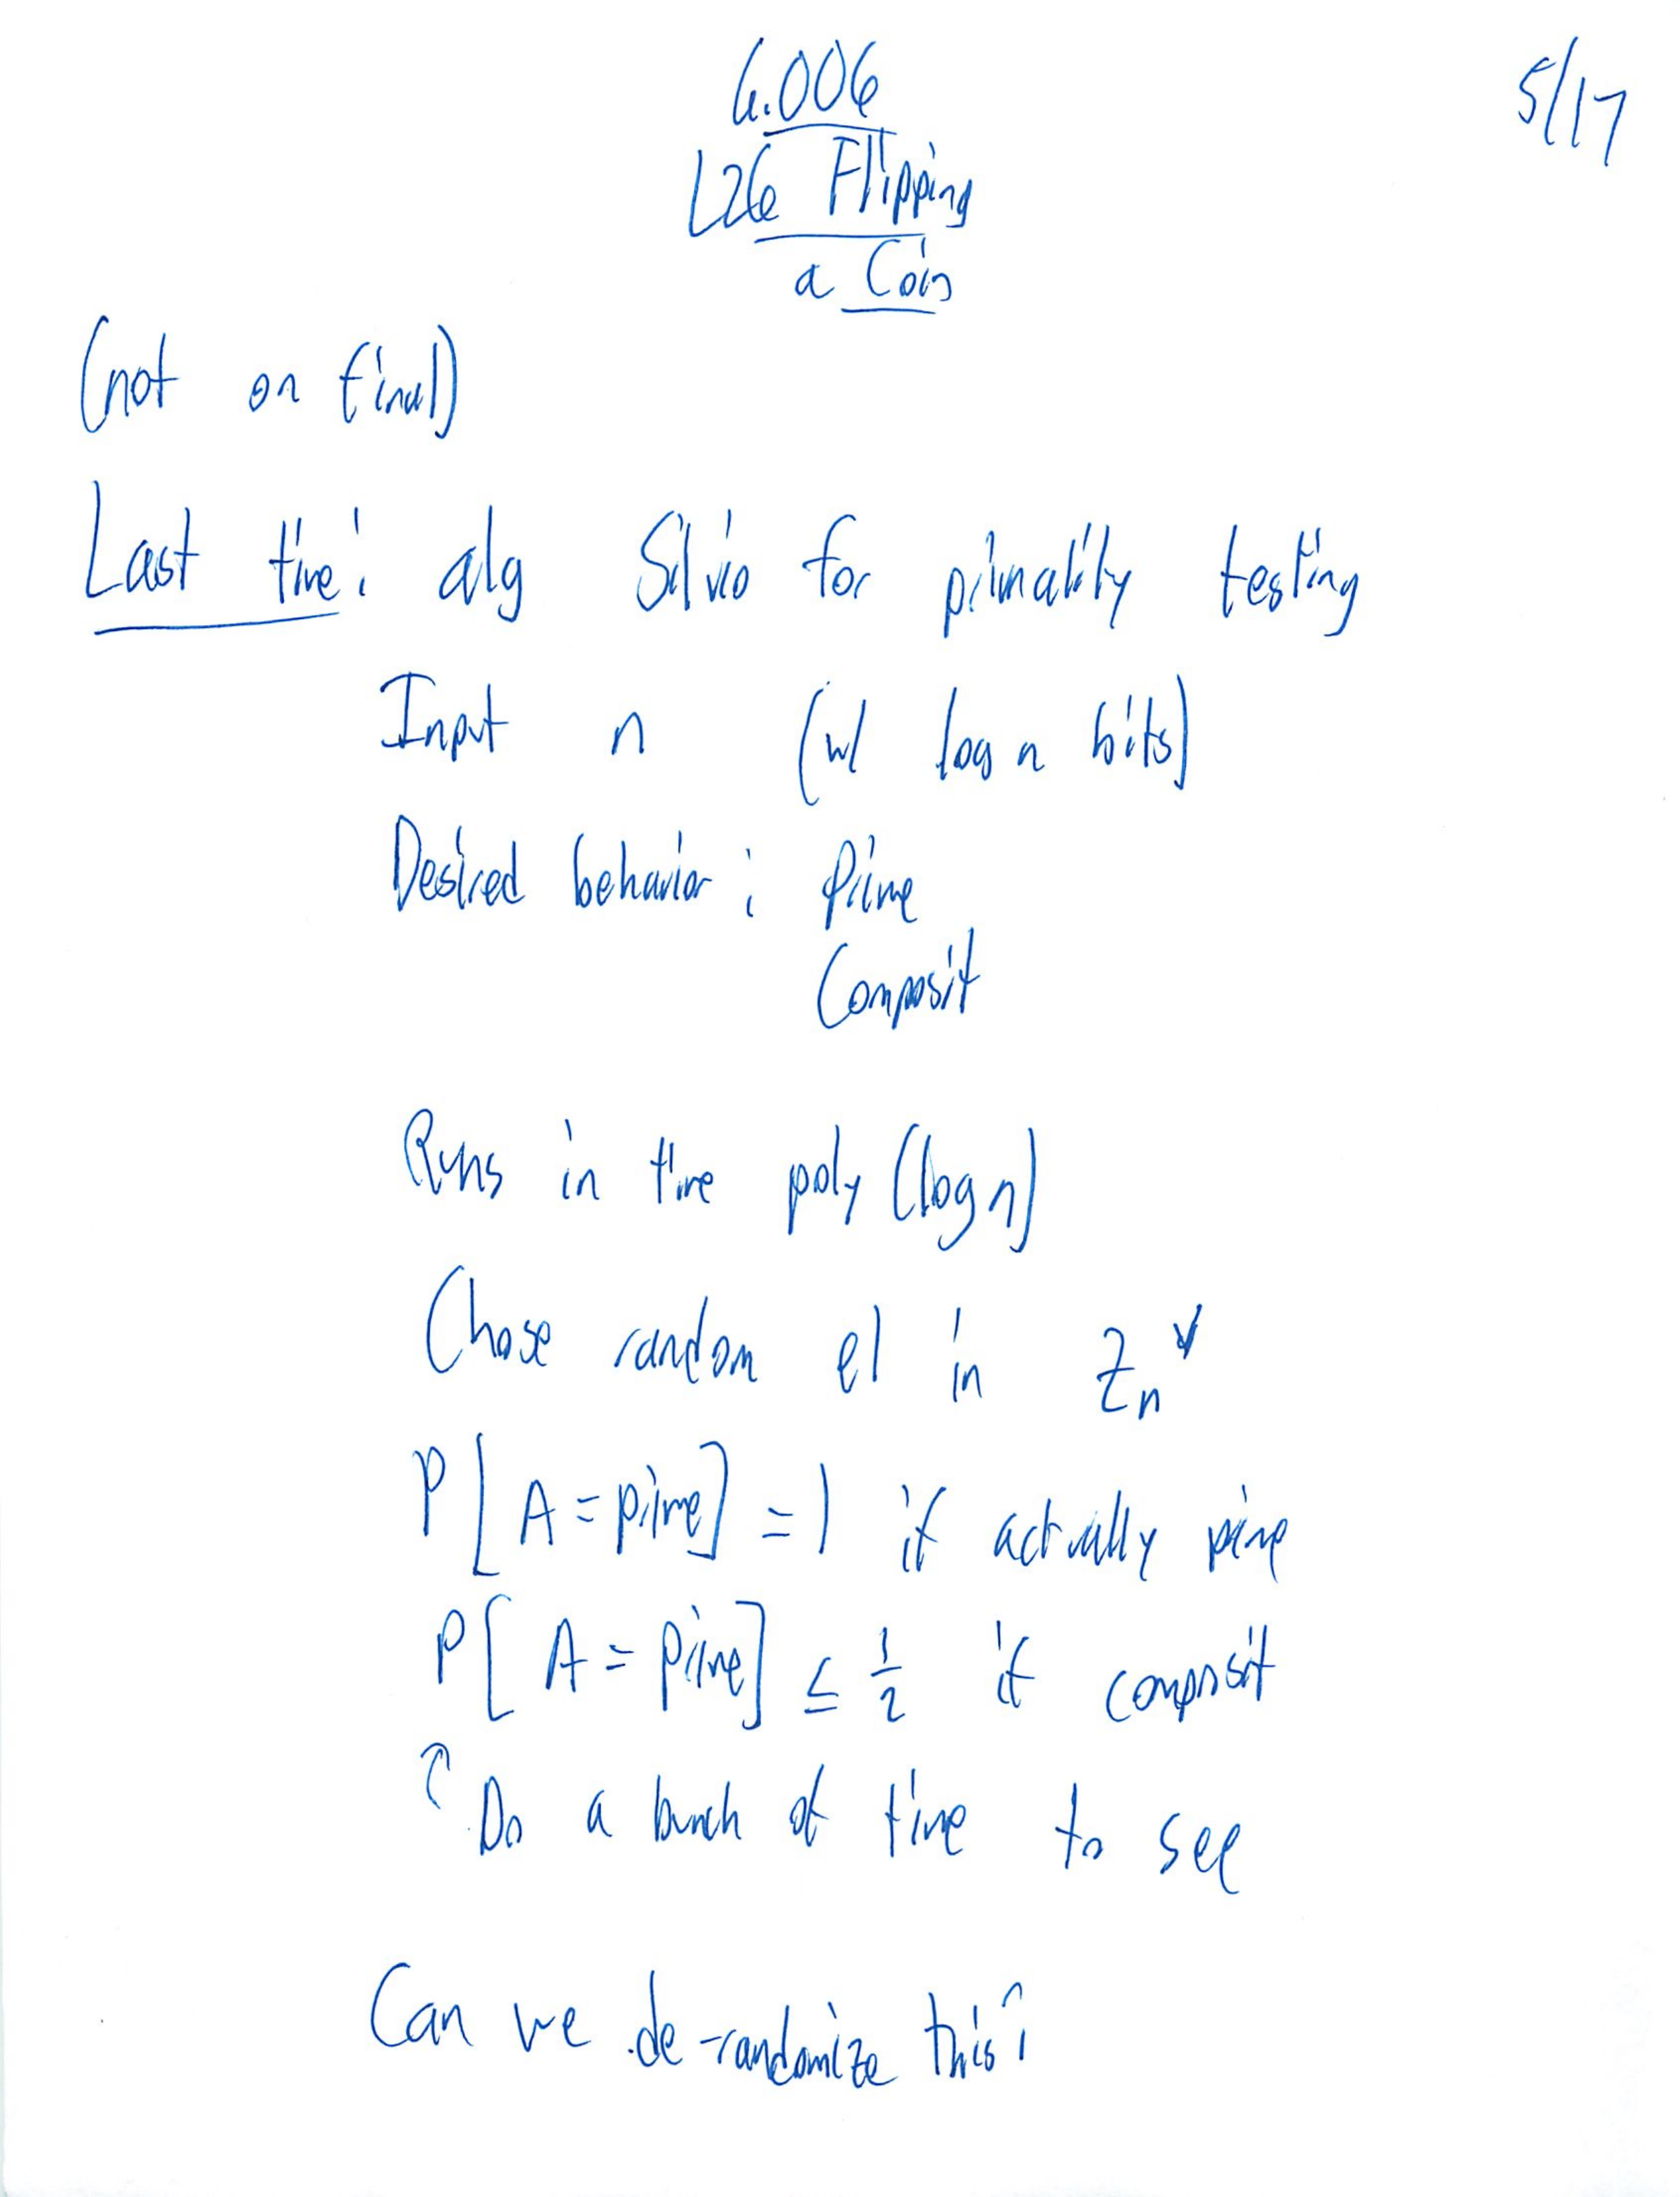 6.006
5/17
L26 Flipping
a Coin
(not on final)
Last time: alg Silvio for primality testing
Input n (w/ log n bits)
Desired behavior: Prime
Composit
Runs in time poly (log n)
Chose random el in Zn*
P[A = prime] = 1 if actually prime
P[A = prime] ≤ 1/2 if composit
↑ Do a bunch of time to see
Can we de-randomize this?